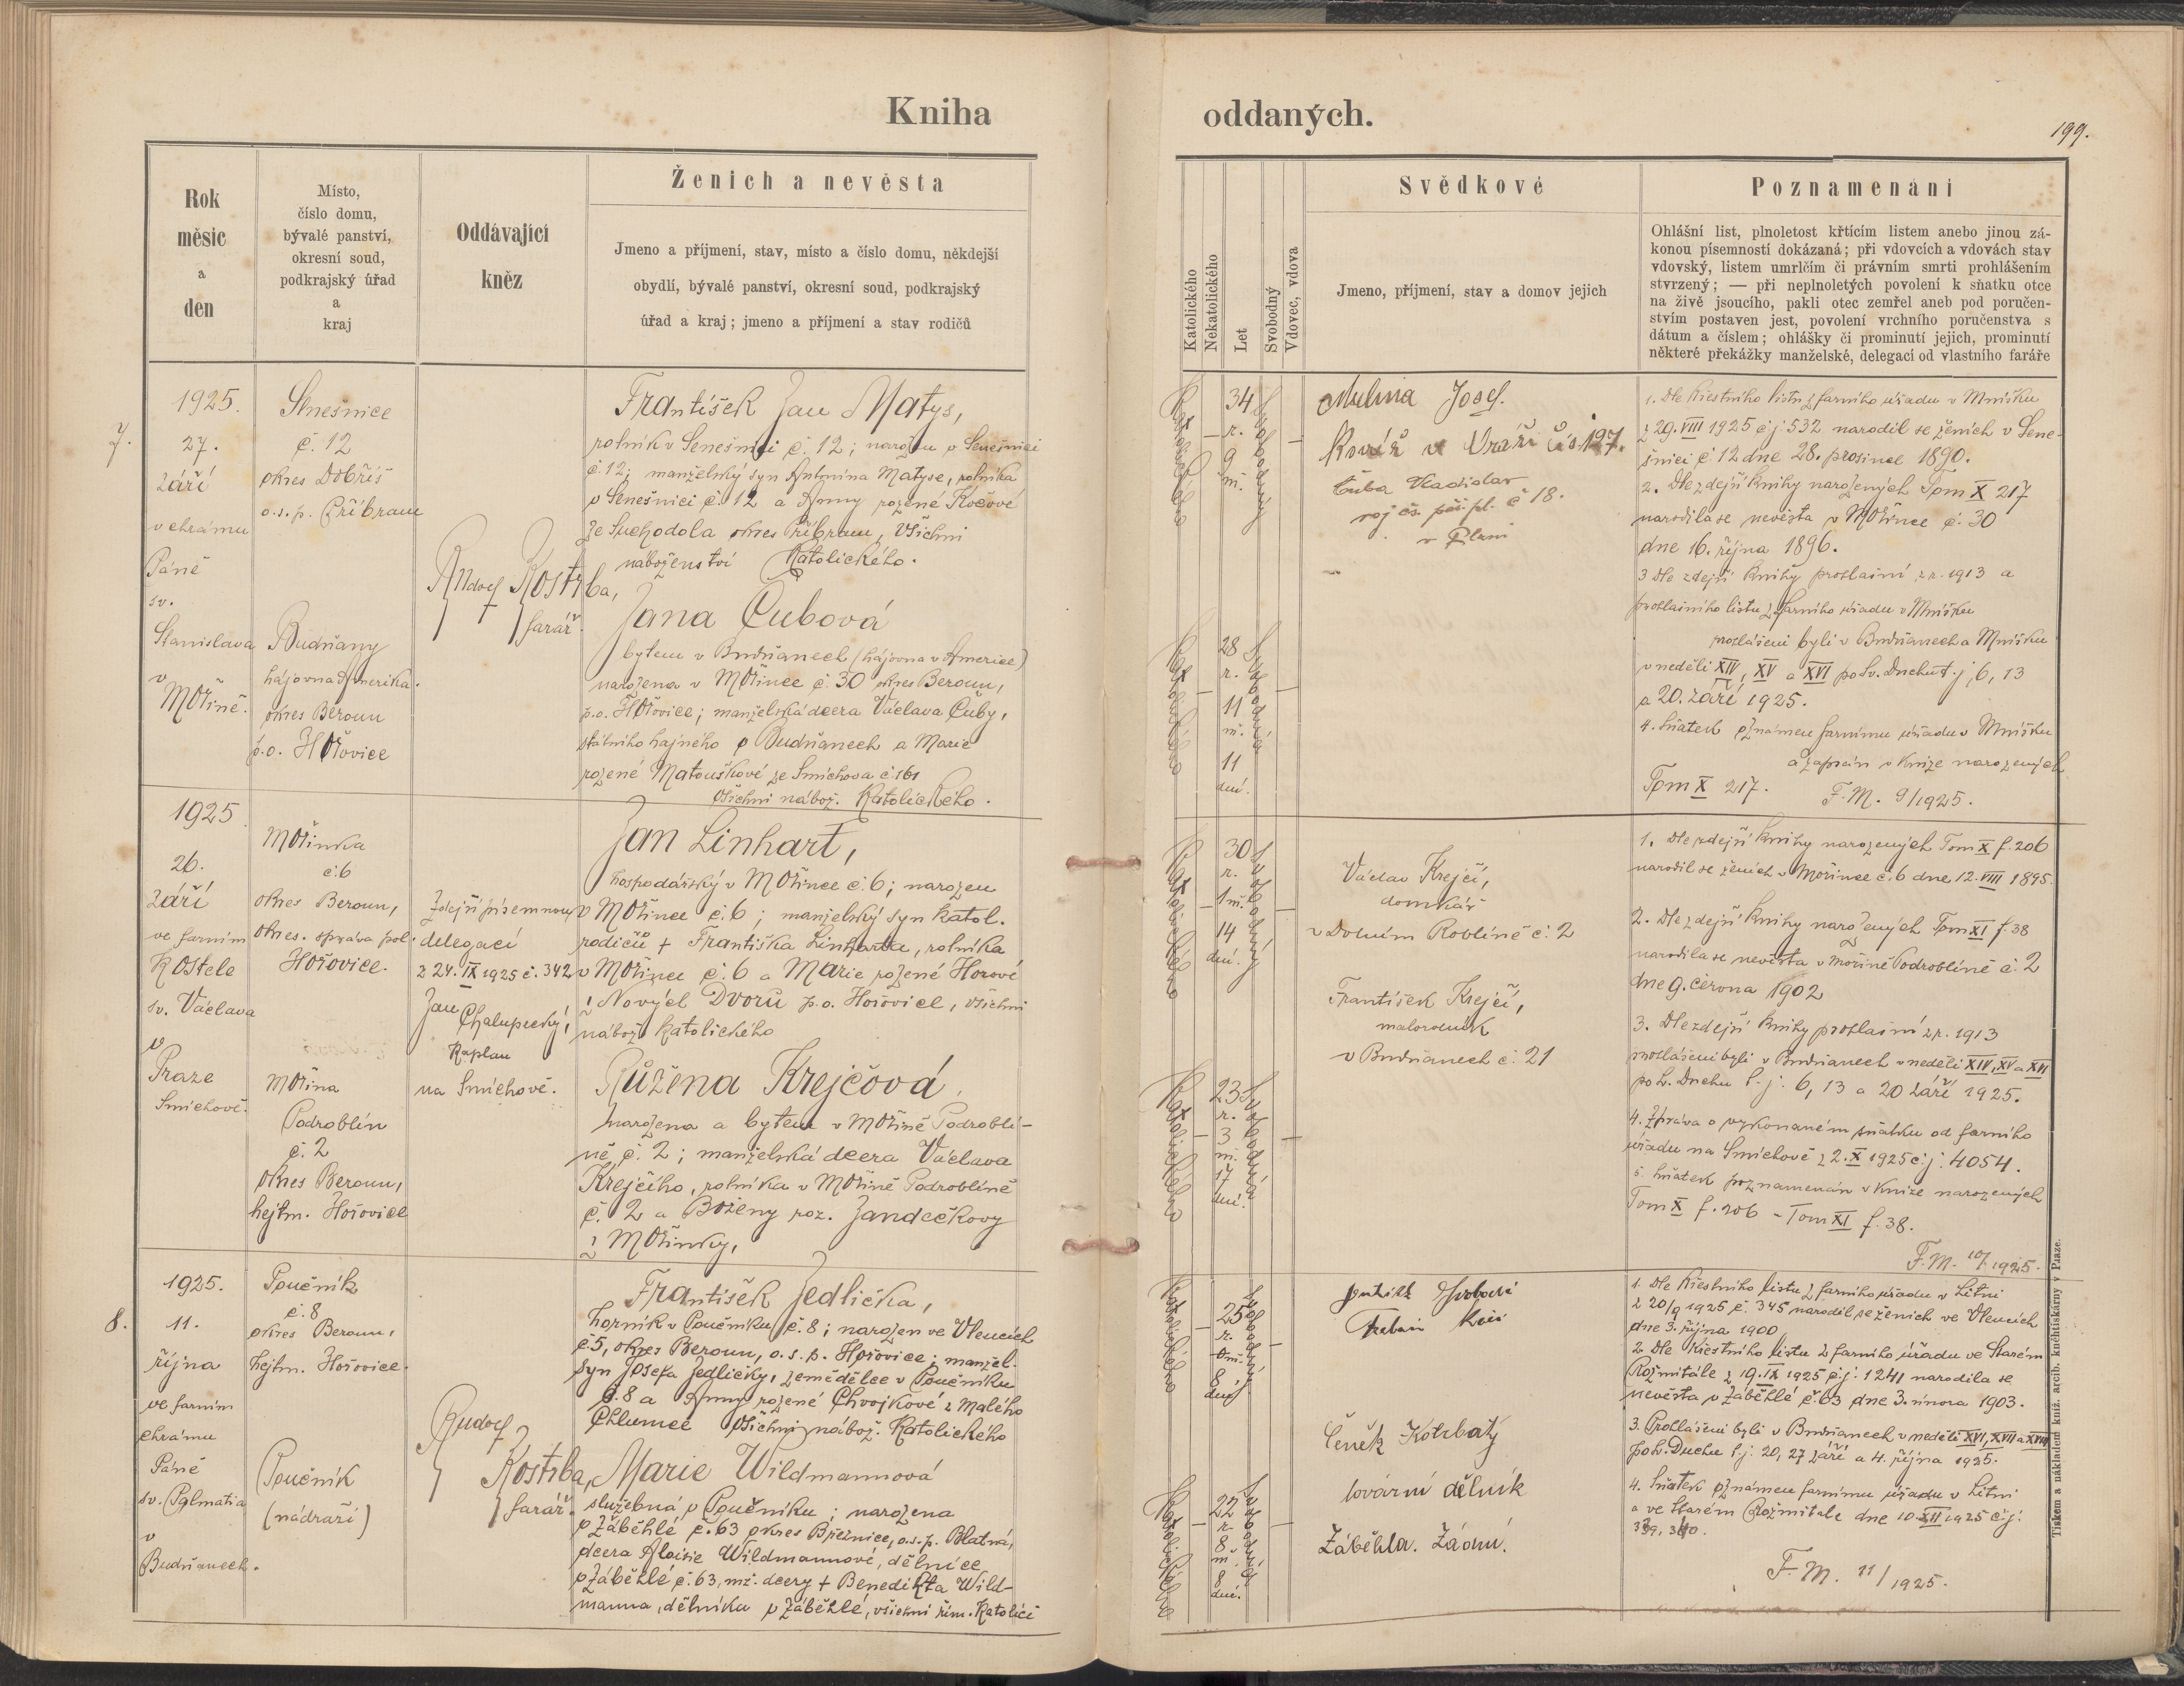 Kniha oddaných.
199.
Rok
měsíc
a
den
Místo,
číslo domu,
bývalé panství,
okresní soud,
podkrajský úřad
a
kraj
Oddávající
kněz
Ženich a nevěsta
Jmeno a příjmení, stav, místo a číslo domu, někdejší
obydlí, bývalé panství, okresní soud, podkrajský
úřad a kraj; jmeno a příjmení a stav rodičů
Katolického
Nekatolického
Let
Svobodný
Vdovec, vdova
Svědkové
Jmeno, příjmení, stav a domov jejich
Poznamenání
Ohlášní list, plnoletost křtícím listem anebo jinou zá-
konou písemností dokázaná; při vdovcích a vdovách stav
vdovský, listem umrlčím či právním smrti prohlášením
stvrzený; — při neplnoletých povolení k sňatku otce
na živě jsoucího, pakli otec zemřel aneb pod poručen-
stvím postaven jest, povolení vrchního poručenstva s
dátum a číslem; ohlášky či prominutí jejich, prominutí
některé překážky manželské, delegací od vlastního faráře
7.
1925.
27.
září
v chrámu
Páně
sv.
Stanislava
v
Mořině.
Senešnice
č. 12
okres Dobříš
o.s.p. Příbram
Budňany
hájovna Amerika.
okres Beroun
p.o. Hořovice
Rudolf Kostrba,
farář.
František Jan Matys,
rolník v Senešnici č. 12; narozen v Senešnici
č. 12; manželský syn Antonína Matyse, rolníka
v Senešnici č. 12 a Anny rozené Kočové
ze Suchodola okres Příbram, všichni
náboženství Katolického.
Jana Čubová
bytem v Budňanech (hájovna v Americe)
narozena v Mořince č. 30 okres Beroun,
p.o. Hořovice; manželská dcera Václava Čuby,
státního hajného v Budňanech a Marie
rozené Matouškové ze Smíchova č. 161
všichni nábož. Katolického.
Katolického
34
r.
9
m.
svobodný
Katolického
28
r.
11
m.
11
dní.
svobodná
Mulina Josef.
Kovář v Vráži čís 127.
Čuba Vladislav
č 18.
1. Dle křestního listu z farního úřadu v Mníšku
z 29. VIII 1925 č j 532 narodil se ženich v Sene-
šnici č. 12 dne 28. prosince 1890.
2. Dle zdejší knihy narozených Tom X 217
narodila se nevěsta v Mořince č. 30
dne 16. října 1896.
3 Dle zdejší knihy prohlašní z r. 1913 a
prohlašního listu z farního úřadu v Mníšku
prohlášeni byli v Budňanech a Mníšku
v neděli XIV, XV a XVI po Sv. Duchu t. j. 6, 13
a 20. září 1925.
4. Sňatek oznámen farnímu úřadu v Mníšku
a zapsán v knize narozených
Tom X 217. F. M. 9/1925.
1925
26.
září
ve farním
kostele
sv. Václava
v
Praze
Smíchově.
Mořinka
č. 6
okres Beroun,
okres. správa pol.
Hořovice.
Mořina
Podroblín
č. 2
okres Beroun,
hejtm. Hořovice
Zdejší písemnou
delegací
z 24. IX 1925 č. 342
Jan
Chalupecký,
kaplan
na Smíchově.
Jan Linhart,
hospodářský v Mořince č. 6; narozen
v Mořince č. 6; manželský syn katol.
rodičů + Františka Linharta, rolníka
v Mořince č. 6 a Marie rozené Horové
z Nových Dvorů p.o. Hořovice, všichni
nábož. katolického
Růžena Krejčová
narozena a bytem v Mořině Podroblí-
ně č. 2; manželská dcera Václava
Krejčího, rolníka v Mořině Podroblíně
č. 2 a Boženy roz. Jandečkovy
z Mořinky,
Katolického
30
r.
1 m.
14
dní.
svobodný
Katolického
23
r.
3
m.
17
dní.
svobodná
Václav Krejčí,
domkář
v Dolním Roblíně č. 2
František Krejčí,
malorolník
v Budňanech č. 21
1. Dle zdejší knihy narozených Tom X f. 206
narodil se ženich v Mořince č. 6 dne 12. VIII 1895.
2. Dle zdejší knihy narozených Tom XI f. 38
narodila se nevěsta v Mořině Podroblíně č. 2
dne 9. června 1902
3. Dle zdejší knihy prohlašní z r. 1913
prohlášeni byli v Budňanech v neděli XIV, XV a XVI
po Sv. Duchu t. j. 6, 13 a 20 září 1925.
4. Zpráva o vykonaném sňatku od farního
úřadu na Smíchově z 2. X 1925 č. j. 4054.
5. Sňatek poznamenán v knize narozených
Tom X f. 206 – Tom XI f. 38.
F. M. 10/1925.
8.
1925.
11.
října
ve farním
chrámu
Páně
sv. Palmatia
v
Budňanech.
Poučník
č. 8
okres Beroun,
hejtm. Hořovice.
Poučník
(nádraží)
Rudolf
Kostrba,
farář.
František Jedlička,
horník v Poučníku č. 8; narozen ve Vlencích
č 5, okres Beroun, o. s. p. Hořovice; manžel.
syn Josefa Jedličky, zemědělce v Poučníku
č. 8 a Anny rozené Chvojkové z Malého
Chlumce všichni nábož. Katolického
Marie Wildmannová
služebná v Poučníku; narozena
v Záběhlé č. 63 okres Březnice, o.s.p. Blatná,
dcera Aloisie Wildmannové, dělnice
v Záběhlé č. 63, mž. dcery + Benedikta Wild-
manna, dělníka v Záběhlé, všichni řím. Katolíci
Katolického
25
r.
0 m.
8
dnů
svobodný
Katolického
22
r.
8
m.
8
dní.
svobodná
Čeněk Kotrbatý
tovární dělník
Záběhla.
1. Dle křestního listu z farního úřadu v Litni
z 20/9 1925 č. 345 narodil se ženich ve Vlencích
dne 3. října 1900
2 Dle křestního listu z farního úřadu ve Starém
Rožmitále z 19. IX 1925 č. j. 1241 narodila se
nevěsta v Záběhlé č. 63 dne 3. února 1903.
3. Prohlášeni byli v Budňanech v neděli XVI, XVII a XVIII
po Sv. Duchu t. j. 20, 27 září a 4. října 1925.
4. Sňatek oznámen farnímu úřadu v Litni
a ve Starém Rožmitále dne 10. XII 1925 č. j.
339, 340.
F. M. 11/1925.
Tiskem a nákladem kníž. arcib. knihtiskárny v Praze.